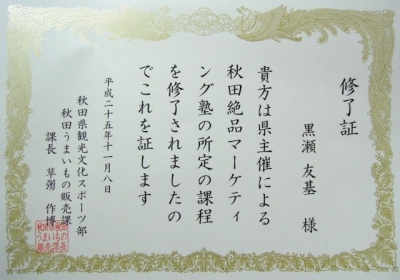 修了証
黒瀬 友基 様
貴方は県主催による
秋田絶品マーケティ
ング塾の所定の課程
を修了されましたの
でこれを証します
平成二十五年十一月八日
秋田県観光文化スポーツ部
秋田うまいもの販売課
課長 草彅 作博